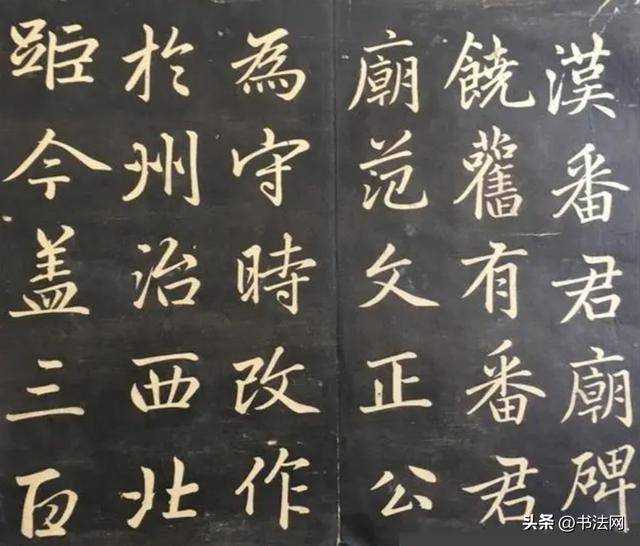 漢番君廟碑
饒舊有番君
廟范文正公
為守時改作
於州治西北
距今盖三百
头条 @书法网